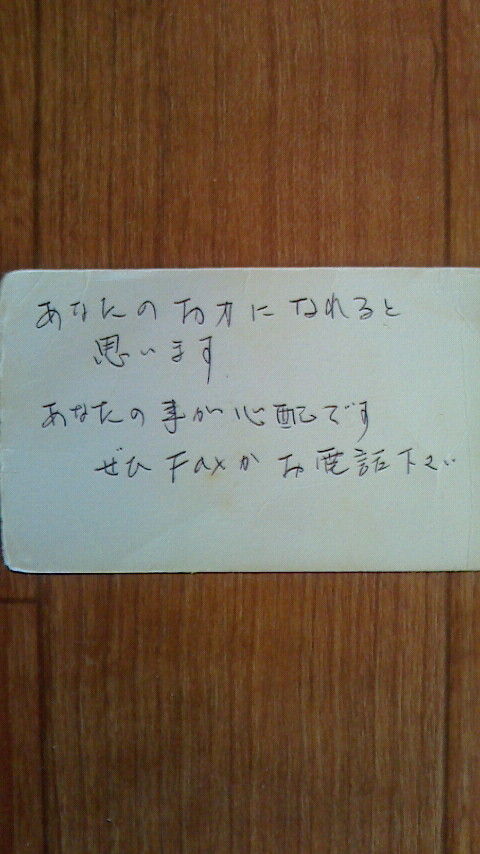 あなたのお力になれると
思います
あなたの事が心配です
ぜひFaxかお電話下さい